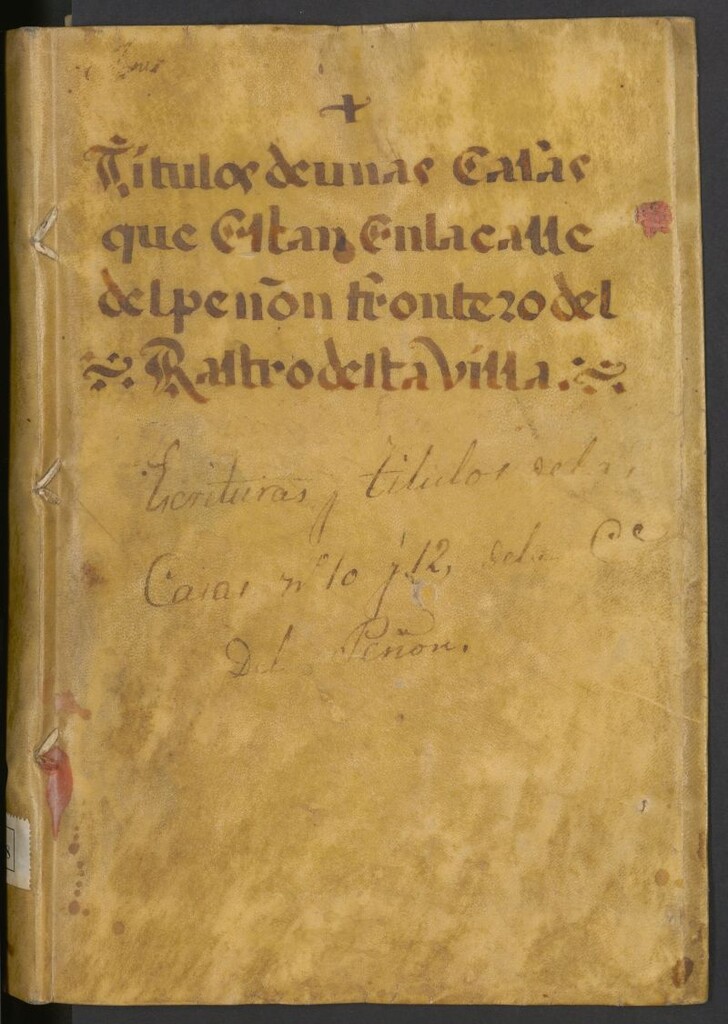 +
Titulos deunas Casas
que Estan Enlacalle
delpeñon frontero del
Rastro desta Villa.
Escrituras y titulos de la,
Casas nº 10 y 12, de la Cᵉ
Del Peñon.